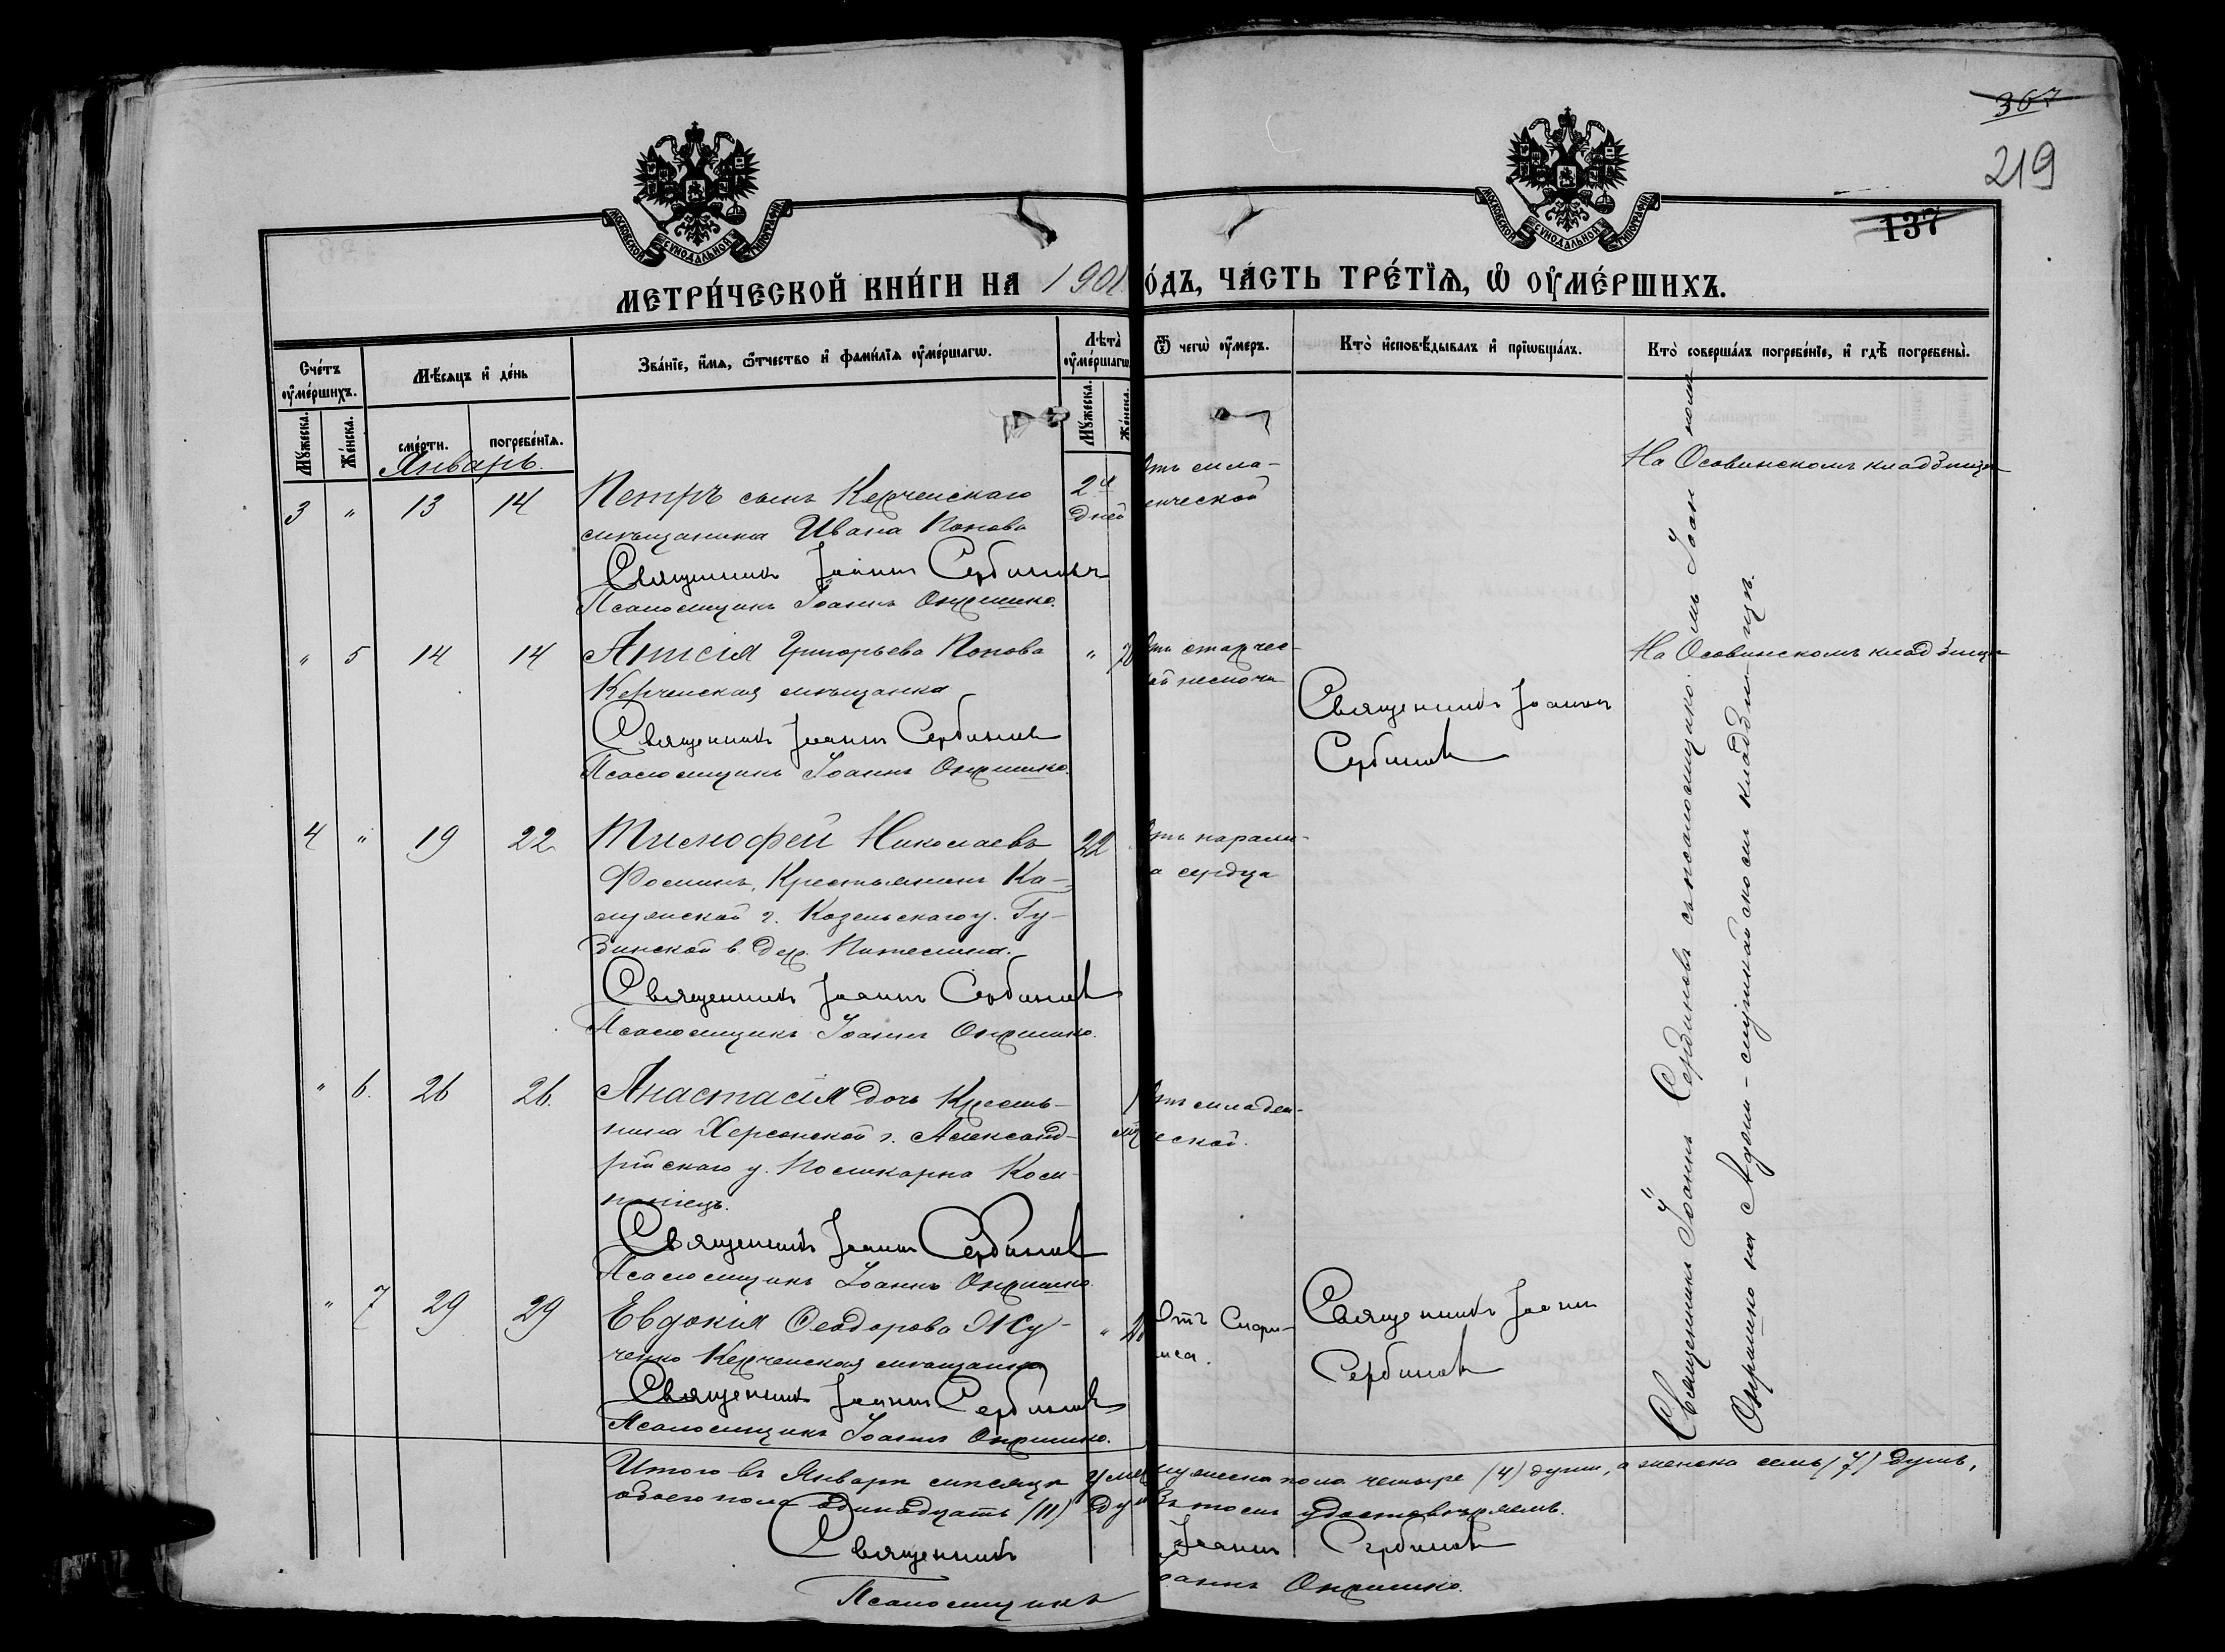 367
219
137
МОСКОВСКОЙ СѴНОДАЛЬНОЙ ТИПОГРАФІИ
МОСКОВСКОЙ СѴНОДАЛЬНОЙ ТИПОГРАФІИ
МЕТРИ́ЧЕСКОЙ КНИ́ГИ НА 1901 О́ДЪ, ЧА́СТЬ ТРЕ́ТЇѦ, Ѡ҆ ОУ҆МЕ́РШИХЪ.
Сче́тъ оу҆ме́ршихъ.
Мꙋ́жеска.
Же́нска.
Мѣ́сяцъ и҆ де́нь
сме́рти.
погребе́нїѧ.
Зва́нїе, и҆́мѧ, ѻ҆́тчество и҆ фами́лїѧ оу҆ме́ршагѡ.
Лѣ́та оу҆ме́ршагѡ
Мꙋ́жеска.
Же́нска.
Ѿ чегѡ̀ оу҆́меръ.
Кто̀ и҆сповѣ́дывалъ и҆ прїѡбща́лъ.
Кто̀ соверша́лъ погребе́нїе, и҆ гдѣ̀ погребены̀.
Январь.
3 " 13 14 Петръ сынъ Керченскаго 2 х
мѣщанина Ивана Попова дней
Священникъ Іоаннъ Сербиновъ
Псаломщикъ Іоаннъ Опришко.
отъ мла-
енческой
На Осовинскомъ кладбищѣ
" 5 14 14 Анисія Григорьева Попова "
Керченская мѣщанка
Священникъ Іоаннъ Сербиновъ
Псаломщикъ Іоаннъ Опришко.
отъ старчес-
ой немочи
Священникъ Іоаннъ
Сербиновъ
На Осовинскомъ кладбищѣ
4 " 19 22 Тимофей Николаевъ 22
Фоминъ, Крестьянинъ Ка-
лужской г. Козельскаго у. Гу-
динской в. дер.
Священникъ Іоаннъ Сербиновъ
Псаломщикъ Іоаннъ Опришко.
отъ парали-
а сердца
" 6. 26 26. Анастасія дочь Кресть-
нина Херсонской г. Александ-
рійскаго у. Поликарпа Ком-
паніецъ.
Священникъ Іоаннъ Сербиновъ
Псаломщикъ Іоаннъ Опришко.
отъ младен-
ческой.
" 7 29 29 Евдокія Ѳеодорова
ченко Керченская мѣщанка
Священникъ Іоаннъ Сербиновъ
Псаломщикъ Іоаннъ Опришко.
Отъ
Священникъ Іоаннъ
Сербиновъ
Священникъ Іоаннъ Сербиновъ съ псаломщикомъ Іоанномъ
Опришко на Аджи-мушкайскомъ кладбищѣ.
Итого въ Январѣ мѣсяцѣ уме мужеска пола четыре (4) души, а женска семь (7) душъ,
обоего пола одинадцать (11) душ Въ томъ удостовѣряемъ.
Священникъ Іоаннъ Сербиновъ
Псаломщикъ Іоаннъ Опришко.